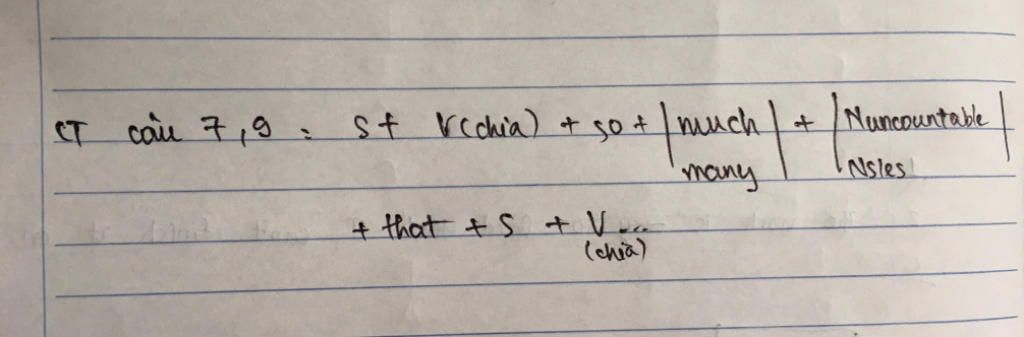 CT câu 7,9 : S + V(chia) + so + | much | + | Nuncountable |
many Ns/es
+ that + S + V...
(chia)